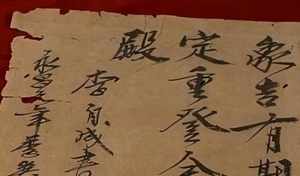 象吉有期
定重登金
殿
李自成書
永昌元年